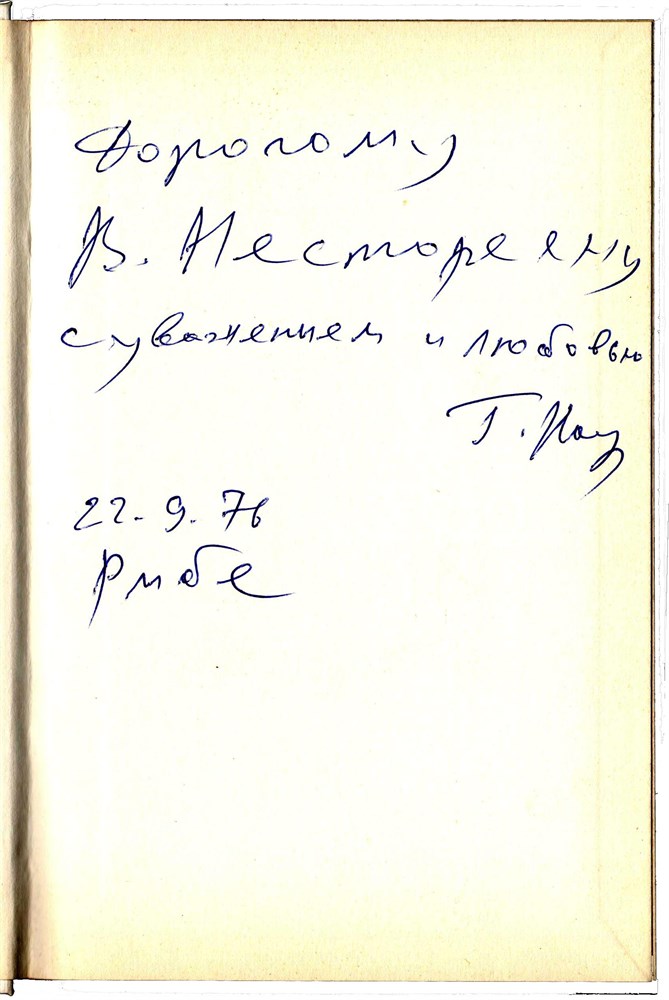 Дорогому
В. Нестореену
с уважением и любовью
Г.
22.9.76
Рибе